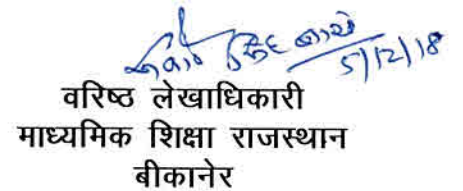 5/12/18
वरिष्ठ लेखाधिकारी
माध्यमिक शिक्षा राजस्थान
बीकानेर